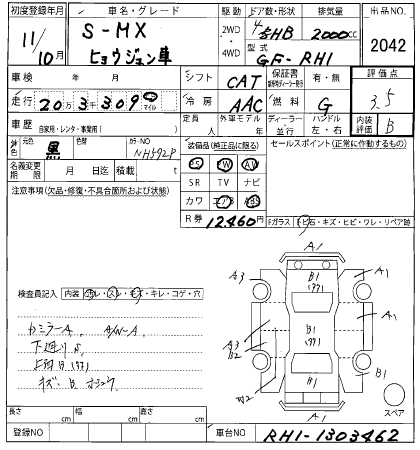 初度登録年月 車名・グレード 駆動 ドア数・形状 排気量 出品NO.
11/10月 S-MX ヒョウジュン車 2WD・4WD 5HB 2000cc 2042
型式 GF-RH1
車検 年 月 シフト CAT 保証書 有・無 評価点
走行 20万3千309 マイル 冷房 AAC 燃料 G 3.5
車歴 自家用・レンタ・事業用( ) 定員 人 外車モデル 年 ディーラー・並行 ハンドル 左・右 内装評価 B
外色 元色 黒 色替 カラーNO NH592P 装備品(純正品に限る) セールスポイント(正常に作動するもの)
PS PW AW
名義変更期限 月 日迄 積載 t SR TV ナビ
注意事項(欠品・修復・不具合箇所および状態) カワ エアB ABS
R券 12,460円 Fガラス トビ石・キズ・ヒビ・ワレ・リペア跡
A1
A3 B1 A1
検査員記入 内装 汚レ・スレ・キズ・キレ・コゲ・穴
A3 B1 A1
B2
カミラーA A/W-A
下廻りS
B1 B1
W2
A1
スペア
長さ cm 幅 cm 高さ cm
登録NO 車台NO RH1-1303462